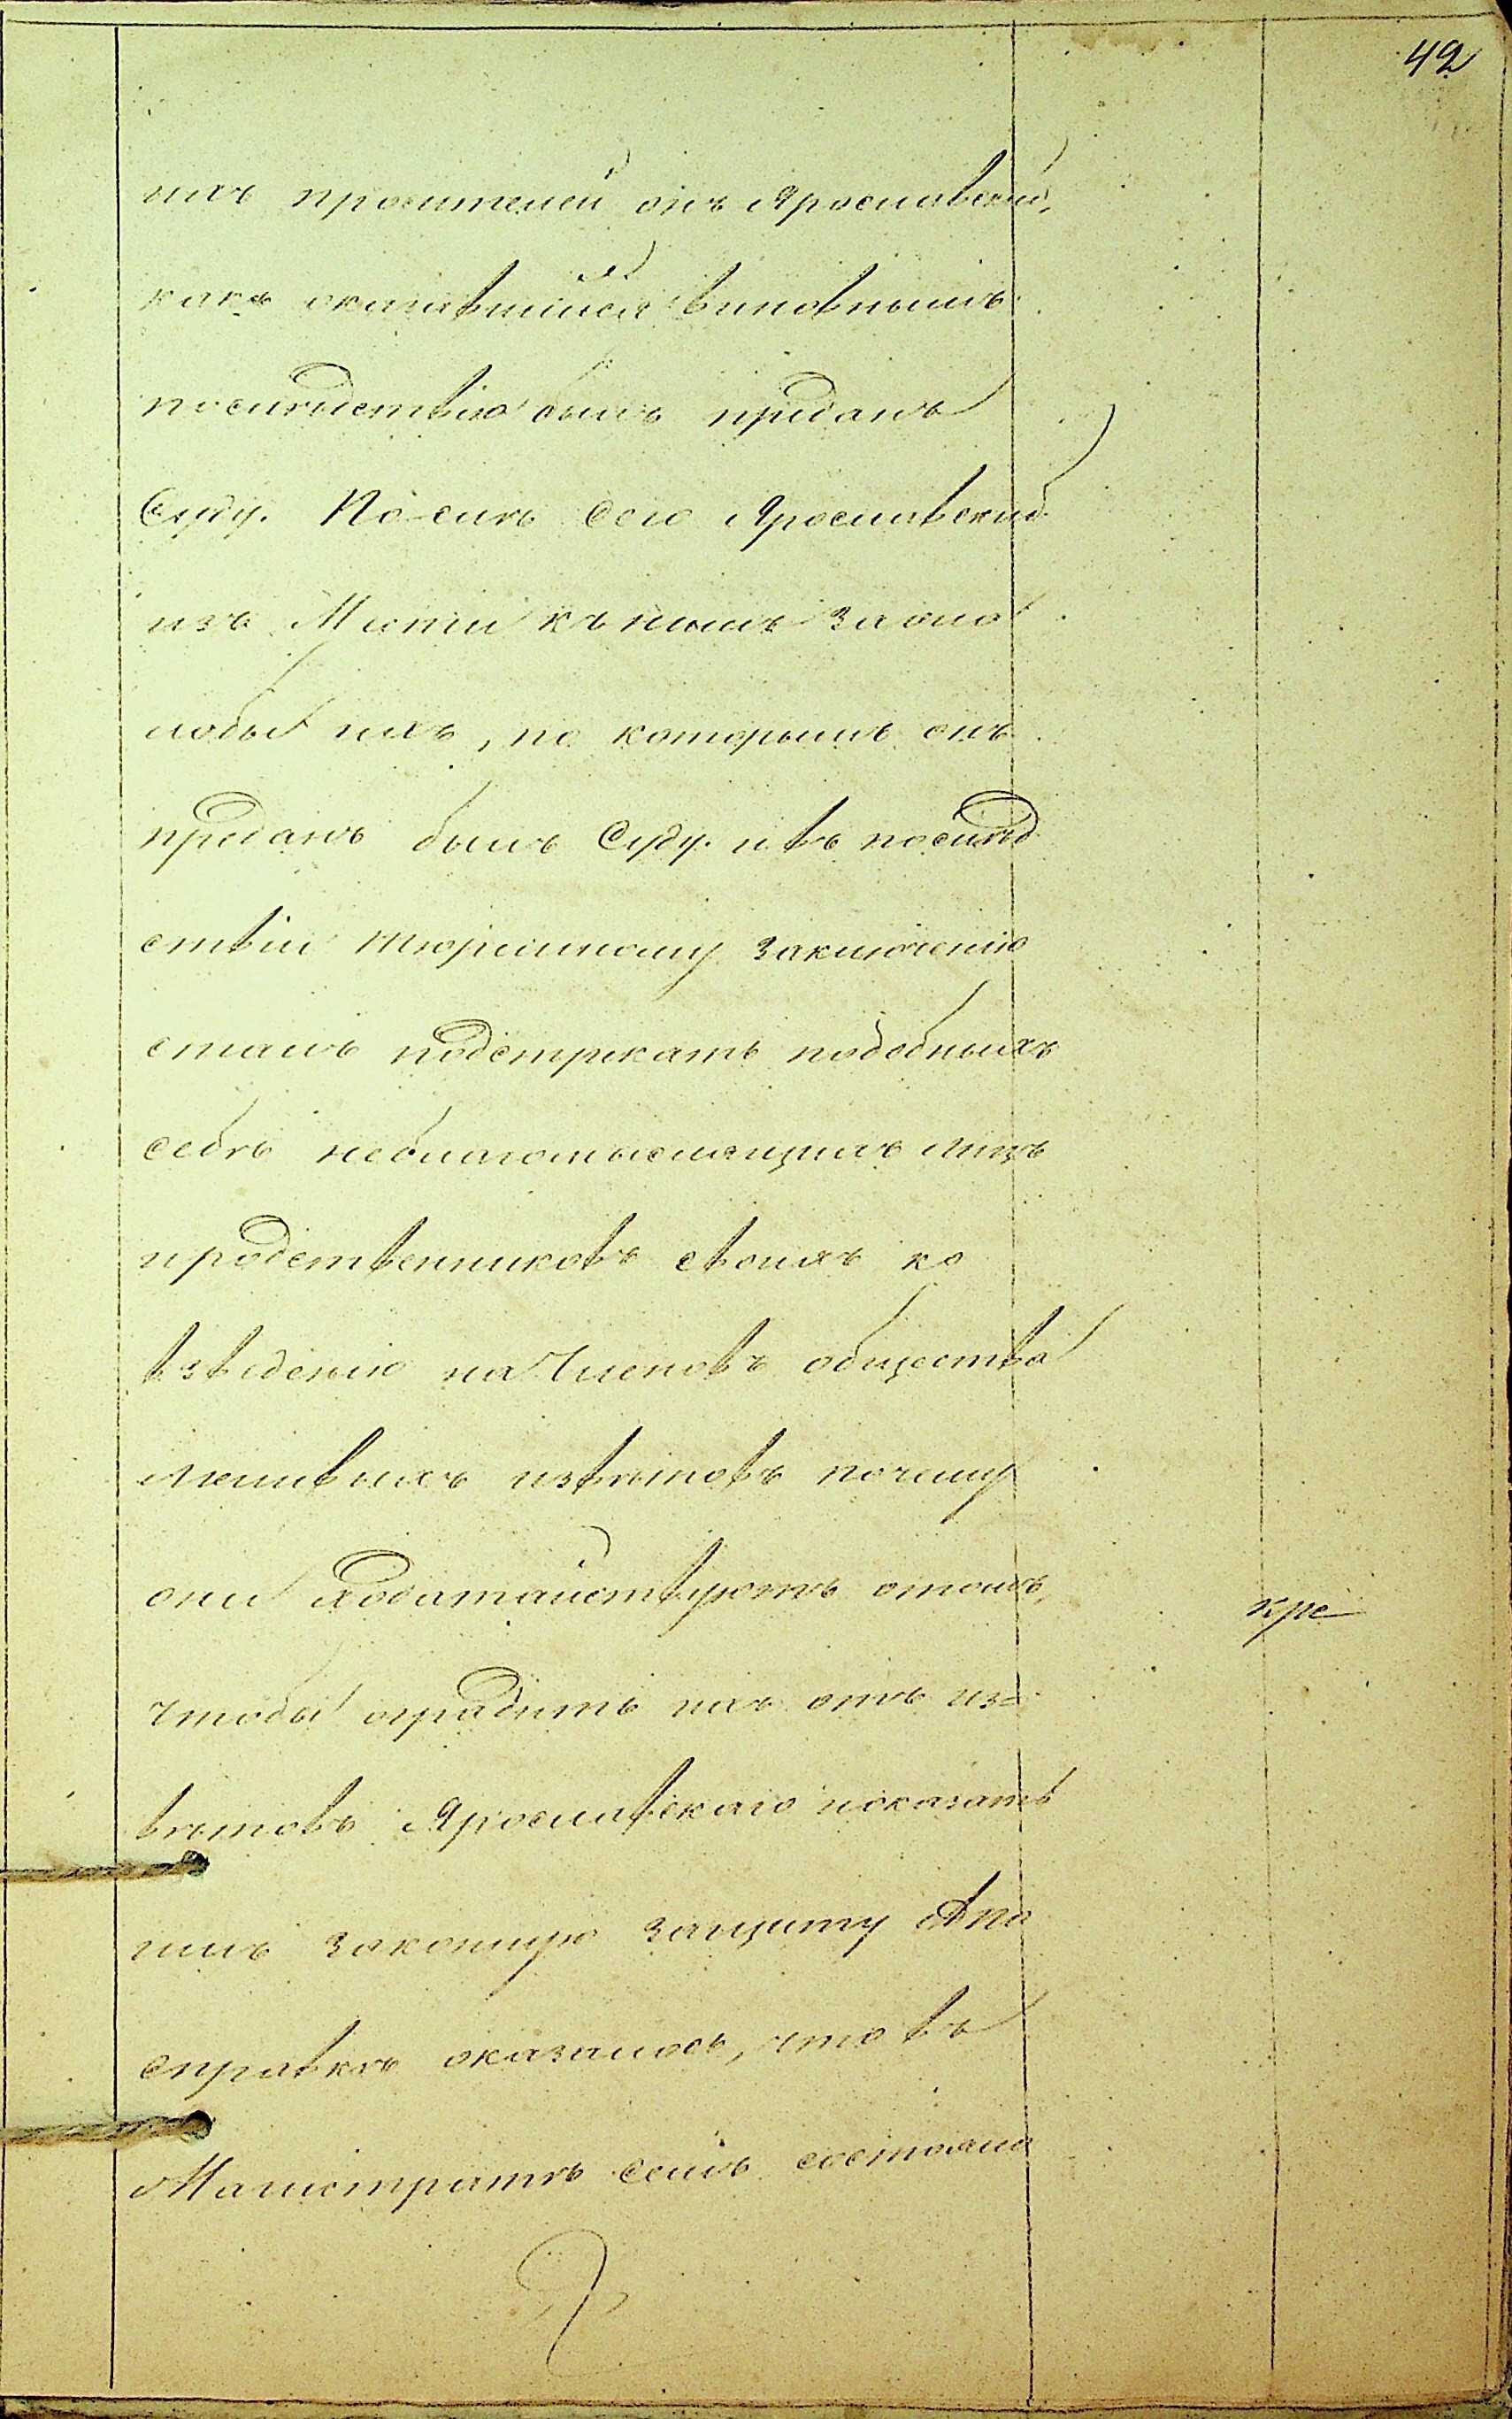 42
ихъ просителей онъ Ярославскій,
какъ оказавшийся виновнымъ
послѣдствію былъ преданъ
Суду. Послѣ сего Ярославскій
изъ Мести къ нимъ за жа
лобы ихъ, по которымъ онъ
преданъ былъ Суду. и въ послѣд
ствіи тюремному заключенію
сталъ подстрекать подобныхъ
себѣ неблагомыслящихъ лицъ
иродственниковъ своихъ ко
взведенію на Членовъ общества
лживыхъ извѣтовъ почему
они ходатайствуютъ отомъ,
чтобы оградить ихъ отъ из-
вѣтовъ Ярославскаго и оказать
имъ законную защиту А по
справкѣ оказалось, что въ
Магистратѣ семъ состояло
кре